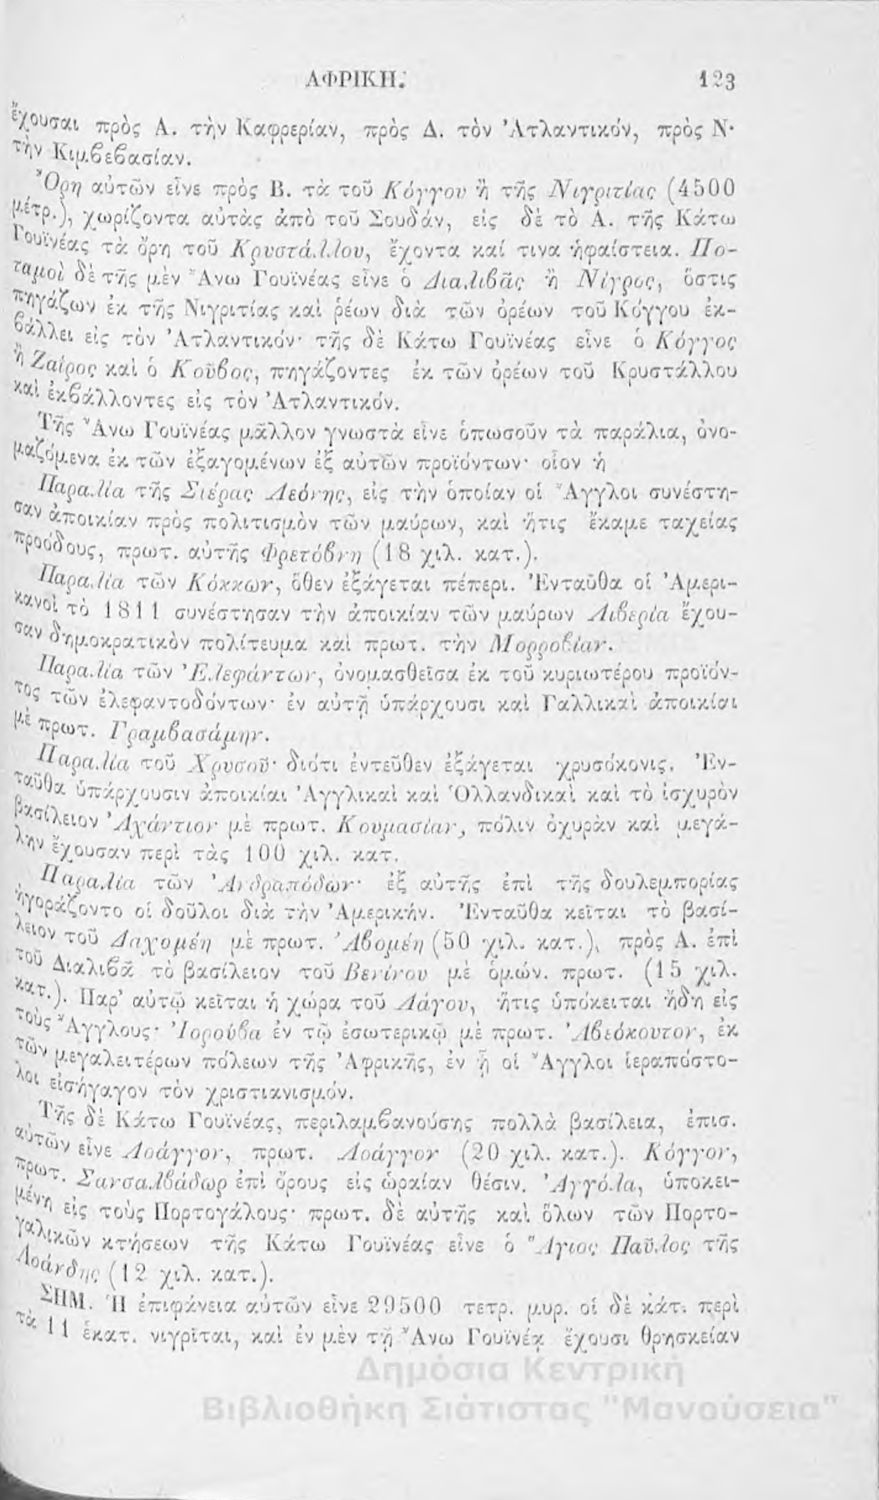 ΑΦΡΙΚΗ. 123
ἔχουσαι πρὸς Α. τὴν Καφρερίαν, πρὸς Δ. τὸν Ἀτλαντικόν, πρὸς Ν·
τὴν Κιμβεβασίαν.
Ὄρη αὐτῶν εἶνε πρὸς Β. τὰ τοῦ Κόγγου ἢ τῆς Νιγριτίας (4500
μέτρ.), χωρίζοντα αὐτὰς ἀπὸ τοῦ Σουδάν, εἰς δὲ τὸ Α. τῆς Κάτω
Γουϊνέας τὰ ὄρη τοῦ Κρυστάλλου, ἔχοντα καί τινα ἡφαίστεια. Πο-
ταμοὶ δὲ τῆς μὲν Ἄνω Γουϊνέας εἶνε ὁ Διαλιβᾶς ἢ Νίγρος, ὅστις
πηγάζων ἐκ τῆς Νιγριτίας καὶ ῥέων διὰ τῶν ὀρέων τοῦ Κόγγου ἐκ-
βάλλει εἰς τὸν Ἀτλαντικόν· τῆς δὲ Κάτω Γουϊνέας εἶνε ὁ Κόγγος
ἢ Ζαΐρος καὶ ὁ Κοῦβος, πηγάζοντες ἐκ τῶν ὀρέων τοῦ Κρυστάλλου
καὶ ἐκβάλλοντες εἰς τὸν Ἀτλαντικόν.
Τῆς Ἄνω Γουϊνέας μᾶλλον γνωστὰ εἶνε ὁπωσοῦν τὰ παράλια, ὀνο-
μαζόμενα ἐκ τῶν ἐξαγομένων ἐξ αὐτῶν προϊόντων· οἷον ἡ
Παραλία τῆς Σιέρας Λεόνης, εἰς τὴν ὁποίαν οἱ Ἄγγλοι συνέστη-
σαν ἀποικίαν πρὸς πολιτισμὸν τῶν μαύρων, καὶ ἥτις ἔκαμε ταχείας
προόδους, πρωτ. αὐτῆς Φρετόβνη (18 χιλ. κατ.).
Παραλία τῶν Κόκκων, ὅθεν ἐξάγεται πέπερι. Ἐνταῦθα οἱ Ἀμερι-
κανοὶ τὸ 1811 συνέστησαν τὴν ἀποικίαν τῶν μαύρων Λιβερία ἔχου-
σαν δημοκρατικὸν πολίτευμα καὶ πρωτ. τὴν Μορροβίαν.
Παραλία τῶν Ἐλεφάντων, ὀνομασθεῖσα ἐκ τοῦ κυριωτέρου προϊόν-
τος τῶν ἐλεφαντοδόντων· ἐν αὐτῇ ὑπάρχουσι καὶ Γαλλικαὶ ἀποικίαι
μὲ πρωτ. Γραμβασάμην.
Παραλία τοῦ Χρυσοῦ· διότι ἐντεῦθεν ἐξάγεται χρυσόκονις. Ἐν-
ταῦθα ὑπάρχουσιν ἀποικίαι Ἀγγλικαὶ καὶ Ὁλλανδικαὶ καὶ τὸ ἰσχυρὸν
βασίλειον Ἀχάντιον μὲ πρωτ. Κουμασίαν, πόλιν ὀχυρὰν καὶ μεγά-
λην ἔχουσαν περὶ τὰς 100 χιλ. κατ.
Παραλία τῶν Ἀνδραπόδων· ἐξ αὐτῆς ἐπὶ τῆς δουλεμπορίας
ἠγοράζοντο οἱ δοῦλοι διὰ τὴν Ἀμερικήν. Ἐνταῦθα κεῖται τὸ βασί-
λειον τοῦ Δαχομέη μὲ πρωτ. Ἀβομέη (50 χιλ. κατ.), πρὸς Α. ἐπὶ
τοῦ Διαλιβᾶ τὸ βασίλειον τοῦ Βενίνου μὲ ὁμών. πρωτ. (15 χιλ.
κατ.). Παρ' αὐτῷ κεῖται ἡ χώρα τοῦ Λάγου, ἥτις ὑπόκειται ἤδη εἰς
τοὺς Ἄγγλους· Ἰορούβα ἐν τῷ ἐσωτερικῷ μὲ πρωτ. Ἀβεόκουτον, ἐκ
τῶν μεγαλειτέρων πόλεων τῆς Ἀφρικῆς, ἐν ᾗ οἱ Ἄγγλοι ἱεραπόστο-
λοι εἰσήγαγον τὸν χριστιανισμόν.
Τῆς δὲ Κάτω Γουϊνέας, περιλαμβανούσης πολλὰ βασίλεια, ἐπισ.
αὐτῶν εἶνε Λοάγγον, πρωτ. Λοάγγον (20 χιλ. κατ.). Κόγγον,
πρωτ. Σανσαλβάδωρ ἐπὶ ὄρους εἰς ὡραίαν θέσιν. Ἀγγόλα, ὑποκει-
μένη εἰς τοὺς Πορτογάλους· πρωτ. δὲ αὐτῆς καὶ ὅλων τῶν Πορτο-
γαλικῶν κτήσεων τῆς Κάτω Γουϊνέας εἶνε ὁ Ἅγιος Παῦλος τῆς
Λοάνδης (12 χιλ. κατ.).
ΣΗΜ. Ἡ ἐπιφάνεια αὐτῶν εἶνε 29500 τετρ. μυρ. οἱ δὲ κάτ. περὶ
τὰ 11 ἑκατ. νιγρῖται, καὶ ἐν μὲν τῇ Ἄνω Γουϊνέᾳ ἔχουσι θρησκείαν
Δημόσια Κεντρική
Βιβλιοθήκη Σιάτιστας "Μανούσεια"